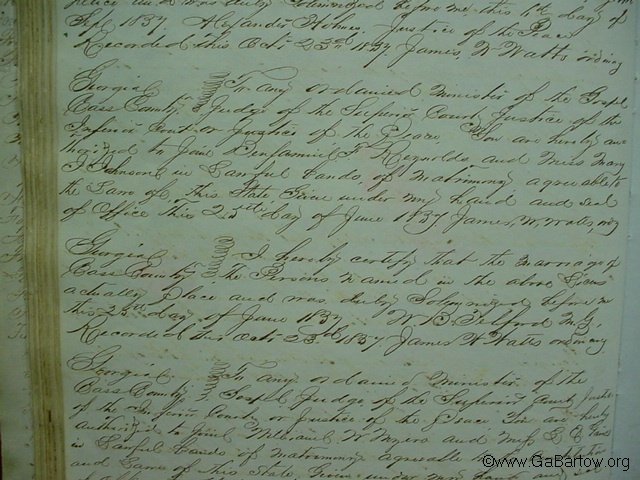 place and was duly Solemnized before me this 1st day of
Sept 1857. Alexander Holmes, Justice of the Peace
Recorded this Oct 23rd 1857. James, W Watts ordinary
Georgia To any ordained Minister of the Gospel
Cass County, Judge of the Superior Court, Justice of the
Inferior Court or Justice of the Peace. You are hereby au-
thorized to Join Benjamin F Reynolds, and Miss Mary
J Johnson in Lawful bands, of matrimony agreeable to
the Laws of this State, Given under my hand and seal
of Office This 25th day of June 1857 James, W, Watts, ordy
Georgia I hereby certify that the marriage of
Cass County the Persons named in the above
actually Place and was duly Solemnized before me
this 25th day of June 1857. W B. Telford M. G,
Recorded this Oct 23rd 1857 James W Watts ordinary
Georgia To any ordained Minister of the
Cass County Gospel Judge of the Superior Court Justice
of the Inferior Court or Justice of the Peace You are hereby
authorized to Join William W and Miss
in Lawful bands of matrimony agreeable to the
and Laws of this State Given under my hand and seal
©www.GaBartow.org